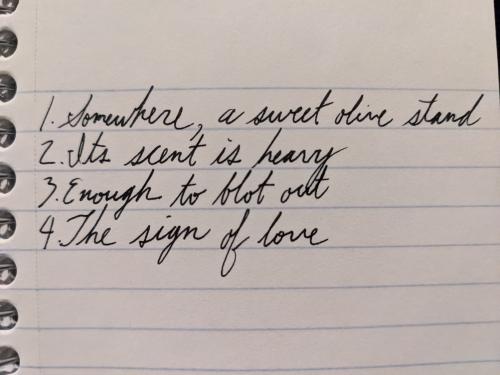 1. Somewhere, a sweet olive stand
2. Its scent is heavy
3. Enough to blot out
4. The sign of love